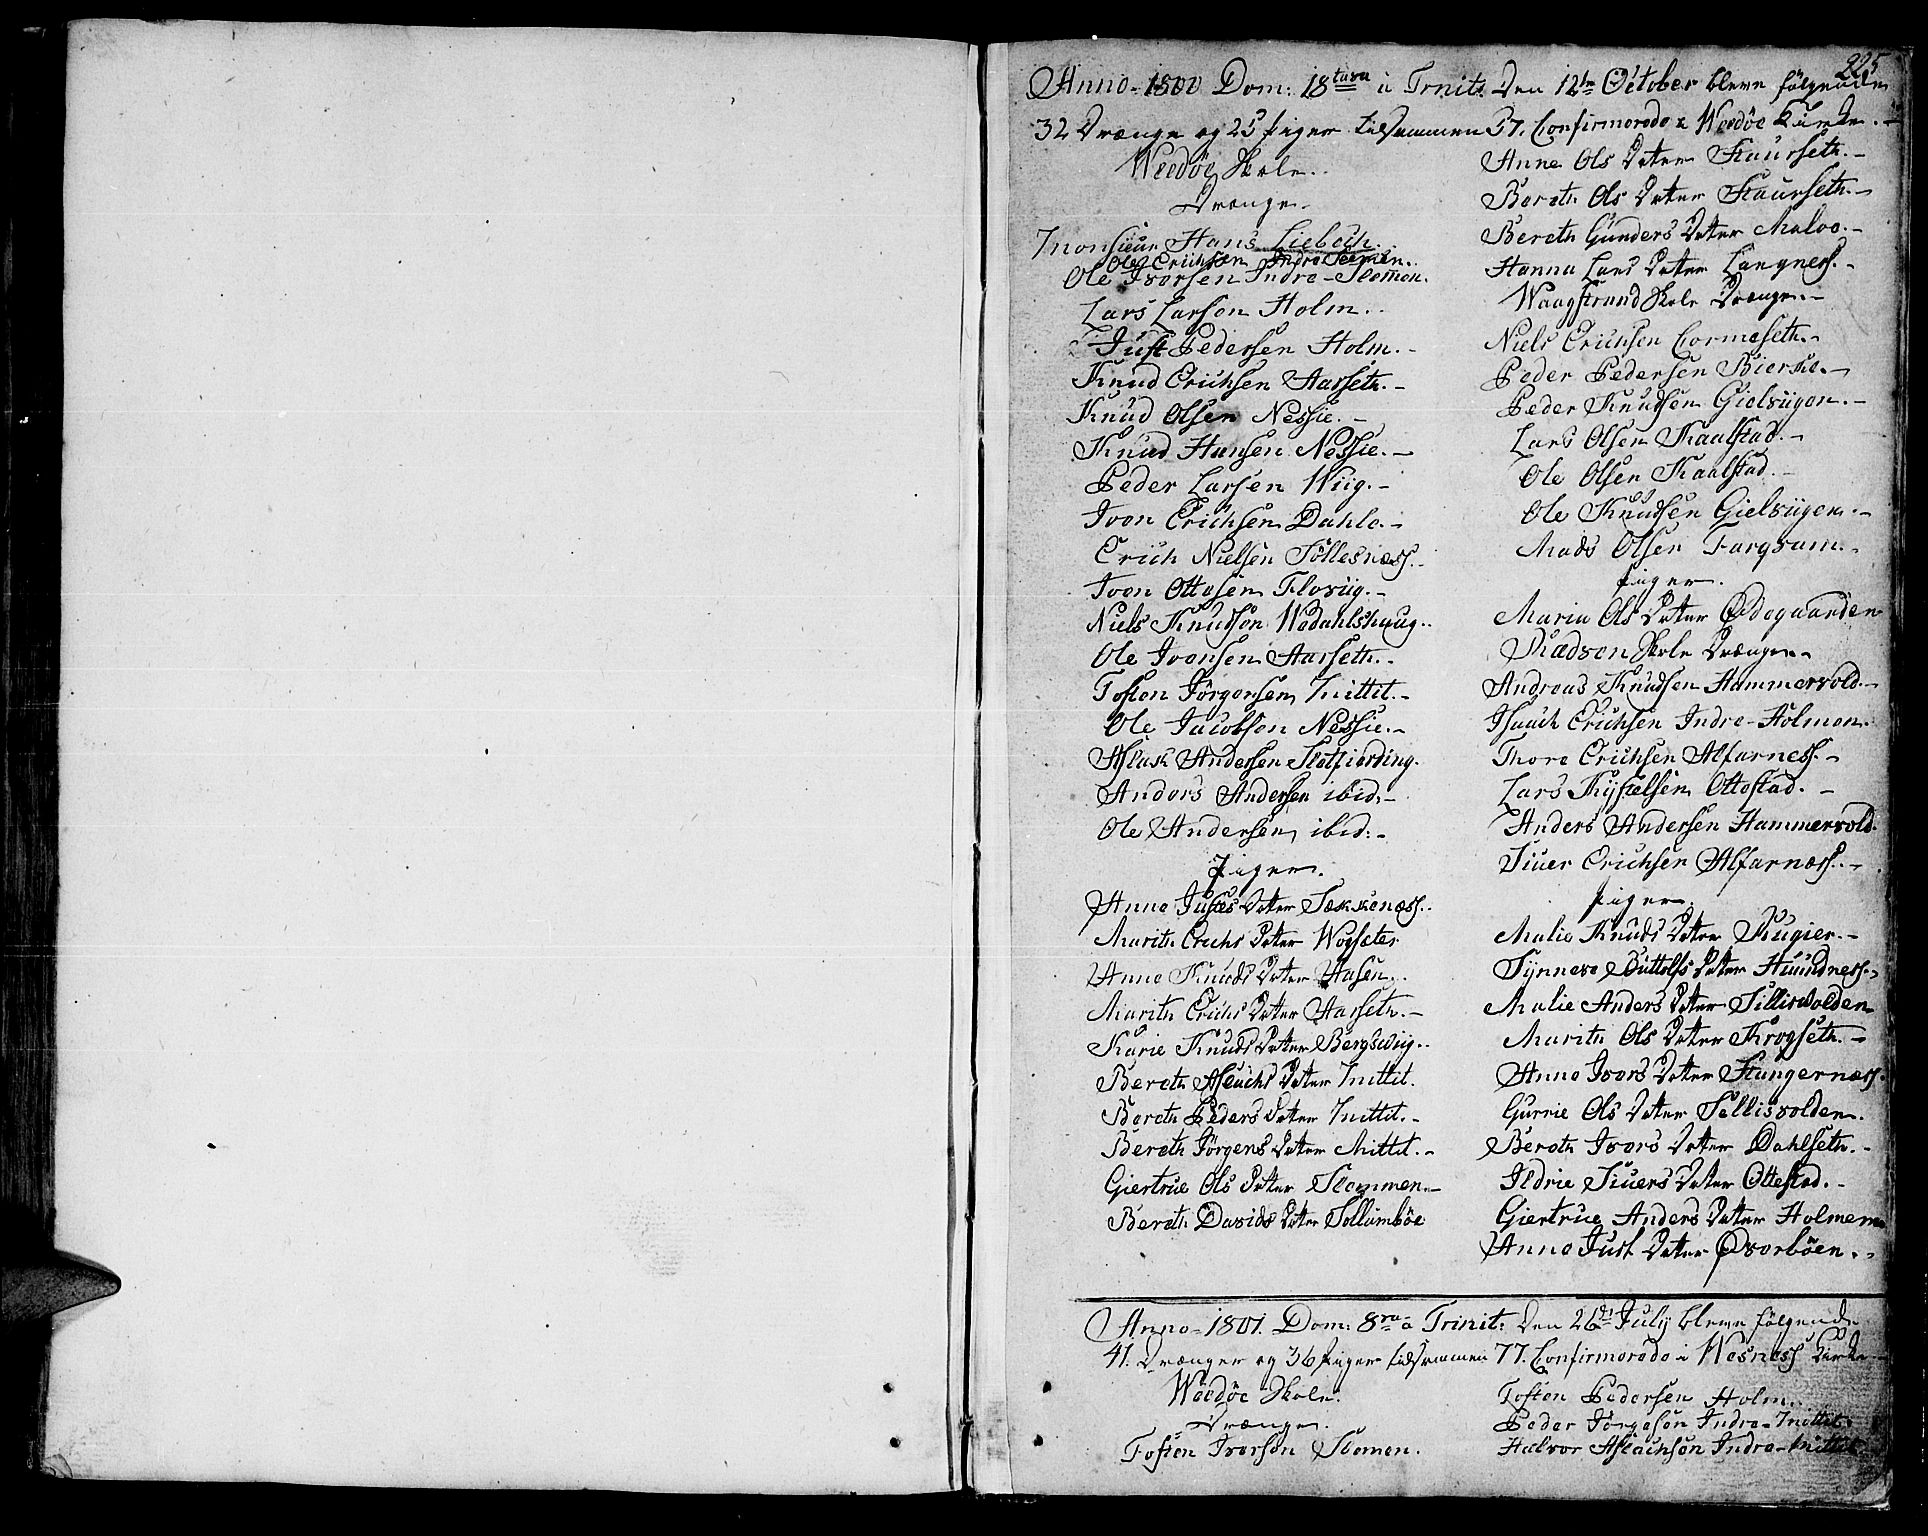 225
Anno 1800 Dom: 18tava a Trnit: Den 12te October bleve følgende
32 Drænge og 25 piger tilsammen 57. Confirmerede i Weedøe Kirke.
Weedøe Skole.
Drænge.
Monsieur Hans Liebech.
Ole Erichsen Indre Slemen.
Ole Iversen Indre-Slemen.
Lars Larsen Holm.
Just Pedersen Holm.
Knud Erichsen Aarseth.
Knud Olsen Nessie.
Knud Hansen Nessie.
Peder Larsen Wiig.
Iven Erichsen Dahle.
Erich Nielsen Søllesness.
Iven Ottesen Flovig.
Niels Knudsen Wedahlshaug.
Ole Ivensen Aarseth.
Tosten Jørgensen Mittit.
Ole Jacobsen Nessie.
Aslak Andersen Sletfierding.
Anders Andersen ibid:
Ole Andersen ibid:
Piger.
Anne Justs Datter Sækkenæss.
Marith Erichs Datter Wogsæter
Anne Knuds Datter Aasen.
Marith Erichs Datter Aarseth.
Karie Knuds Datter Bergswiig.
Bereth Aslachs Datter Mittit.
Bereth Peders Datter Mittit.
Bereth Jørgens Datter Mittit.
Giertrue Ols Datter Slemmen.
Bereth Davids Datter Sollumbøe
Anne Ols Datter Staurseth.
Bereth Ols Datter Staurseth.
Bereth Gunders Datter Maloe.
Hanna Lars Datter Langness.
Waagstrand Skole Drænge.
Niels Erichsen Cormeseth.
Peder Pedersen Bierke.
Peder Knudsen Gielsvigen.
Lars Olsen Kaalstad.
Ole Olsen Kaalstad.
Ole Knudsen Gielsvigen.
Mads Olsen Fargvam.
piger.
Maria Ols Datter Ødegaarden
Rødven Skole Drænge.
Andreas Knudsen Hammervold.
Isaach Erichsen Indre-Holmen.
Thore Erichsen Alfarness.
Lars Kystelsen Ottestad.
Anders Andersen Hammervold.
Siuer Erichsen Alfarnæss.
piger.
Malie Knuds Datter Kugier.
Synneve Buttolfs Datter Huusness.
Malie Anders Datter Silliswolden
Marith Ols Datter Krogseth.
Anne Ivers Datter Stangernæss.
Gurrie Ols Datter Sellisvolden.
Bereth Ivers Datter Dahlseth.
Ildrie Siuers Datter Ottestad.
Giertrue Anders Datter Holmem
Anne Just Datter Øverbøen.
Anno 1801. Dom: 8va a Trinit: Den 26de July bleve følgende
41. Drænger og 36 piger tilsammen 77. Confirmerede i Wesness Kirke
Weedøe Skole.
Drænge.
Tosten Iversen Slemen.
Tosten Pedersen Holm.
Peder Jørgesen Indre-Mittit.
Halvor Aslachsen Indre-Mittit